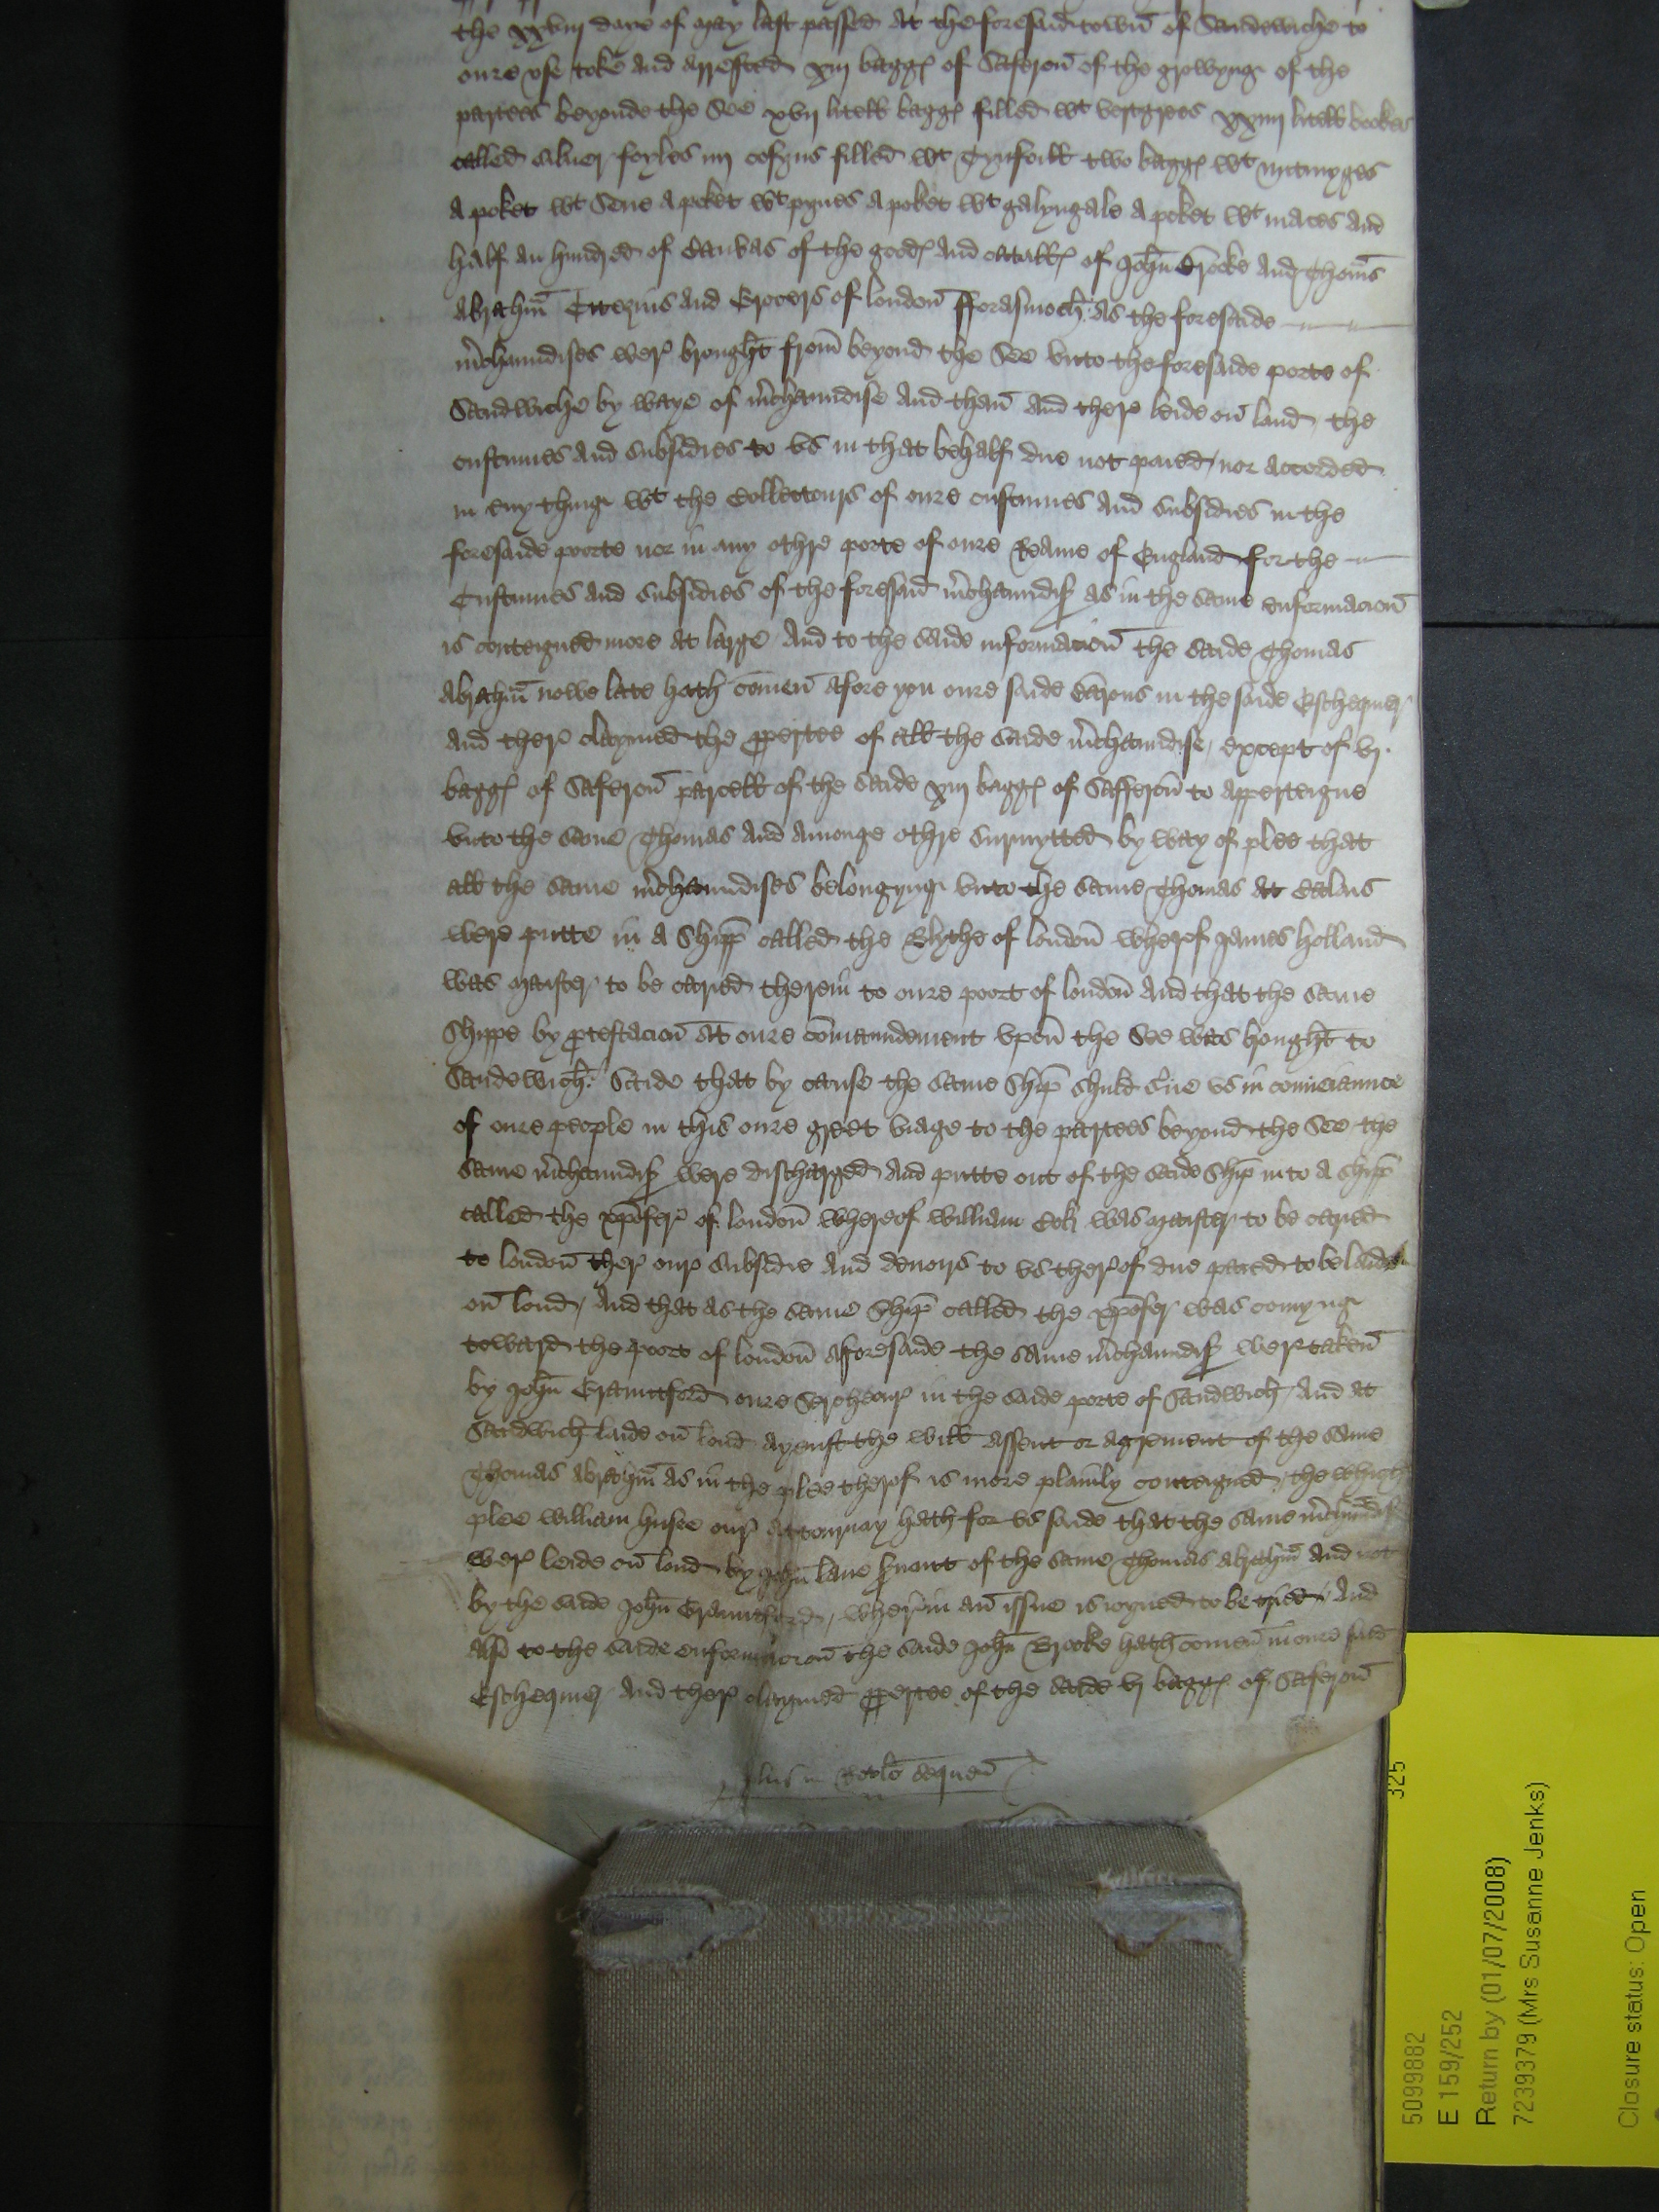 the xxviij daie of May last passed at the foresaid town̄ of Sandewiche to
oure vse toke and arrested xiij bagges of Saferon̄ of the growyng of the
partees beyonde the See xvij litell bagges filled wt vertgrees xxiiij litell bookes
called siluer foyles iiij cofyns filled wt Tynfoill two bagges wt notmyges
a poket wt Sene a poket wt pynes a poket wt galyngale a poket wt maces and
half an hundred of Canvas of the goodes and catalles of John̄ Brooke and Thom̄s
Abrahm̄ Citezins and Grocers of london̄ fforasmoch as the foresaide
m̄chaundises wer brought from̄ beyond the See vnto the foresaide porte of
Sandwiche by waye of m̄chaundise and than̄ and there leide on̄ land the
custumes and subsidies to vs in that behalf due not paied nor accorded
in eny thing wt the Collectours of oure custumes and subsidies in the
foresaide poorte nor in any othre porte of oure Reame of England for the
Custumes and subsidies of the foresaid m̄chaundises as in the same enformacion̄
is conteigned more at large And to the saide informacion̄ the saide Thomas
Abrahm̄ nowe late hath comen̄ afore you oure saide Barons in the saide Eschequier
And ther claymed the ꝓpertee of all the saide m̄chaundise except of vj
bagges of Saferon̄ parcell of the saide xiij bagges of Safferon̄ to apperteigne
vnto the same Thomas and amonge othre surmytted by way of plee that
all the same m̄chaundises belongyng vnto the same Thomas at Calais
were putte in a Shipp̄ called the Blythe of london̄ wherof James Holland
was Maister to be caried therein to oure poort of london̄ And that the same
shippe by ꝓtestacion̄ at oure com̄aundement vpon̄ the See was brought to
Sandewich Saide that by cause the same Ship̄ shuld s̄ue vs in conueiaunce
of oure people in this oure greet viage to the partees beyond the See the
same m̄chaundises were discharged and putte out of the saide Ship̄ into a Ship̄
called the xp̄ofer of london̄ whereof William Cok was Maister to be caried
to london̄ ther our subsidie and deuoirs to vs therof due paied to be laide
on̄ lond And that as the same Ship̄ called the xp̄ofer was comyng
toward the poort of london̄ aforesaide the same m̄chaundises wer taken̄
by John̄ Crauntford oure Sercheour in the saide porte of Sandwich And at
Sandwich laide on̄ lond ayenst the will assent or agrement of the same
Thomas Abrahm̄ as in the plee therof is more plainly conteigned the which
plee William Husee our attournay hath for vs saide that the same m̄chaundises
wer leide on̄ lond by John̄ lane s̄uant of the same Thomas Abrahm̄ and not
by the saide John̄ Crauntford wherin an̄ issue is ioyned to be tried And
also to the saide enformacion̄ the saide John̄ Brooke hath comen̄ in oure said
Eschequier And ther claymed ꝓpertee of the saide vj bagges of Saferon̄
plus in Rotl̄o sequen̄
325
5099882
E 159/252
Return by (01/07/2008)
7239379 (Mrs Susanne Jenks)
Closure status: Open